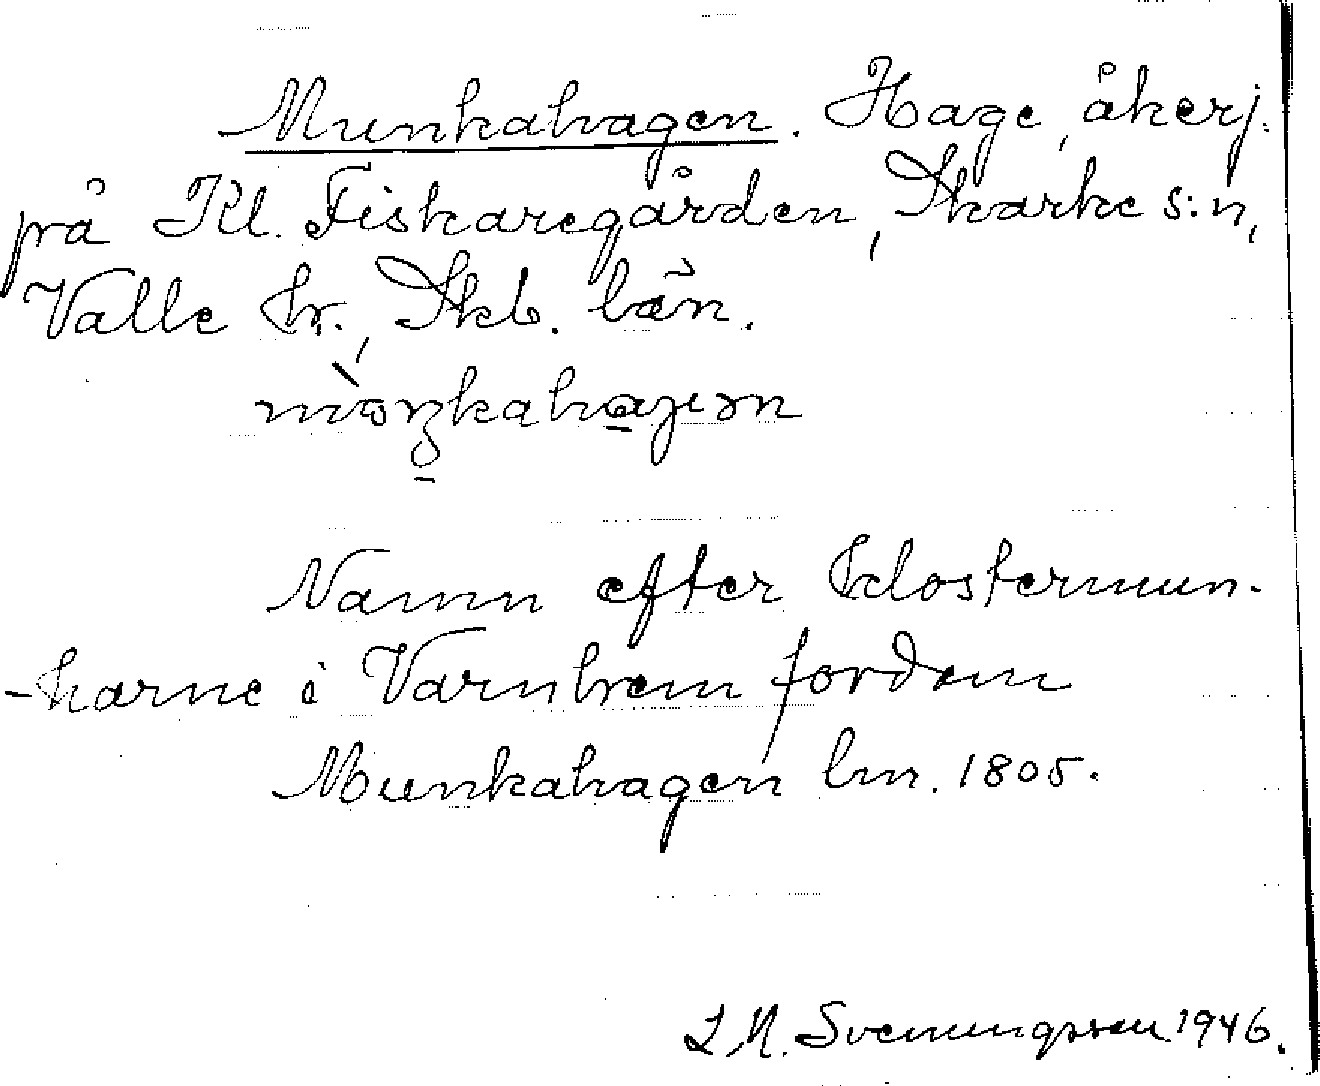 Munkahagen. Hage, åkerj.
på Kl. Fiskaregården, Skarke s:n,
Valle hr., Skb. län.

Namn efter klostermun-
-karne i Varnhem fordom
Munkahagen lm. 1805.
S. Svenungsson 1946.